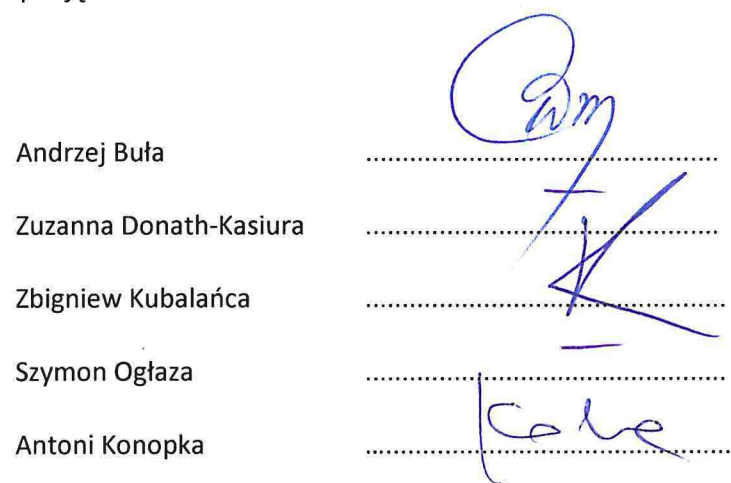 Andrzej Buła ........................................................
Zuzanna Donath-Kasiura ........................................................
Zbigniew Kubalańca ........................................................
Szymon Ogłaza ........................................................
Antoni Konopka ........................................................